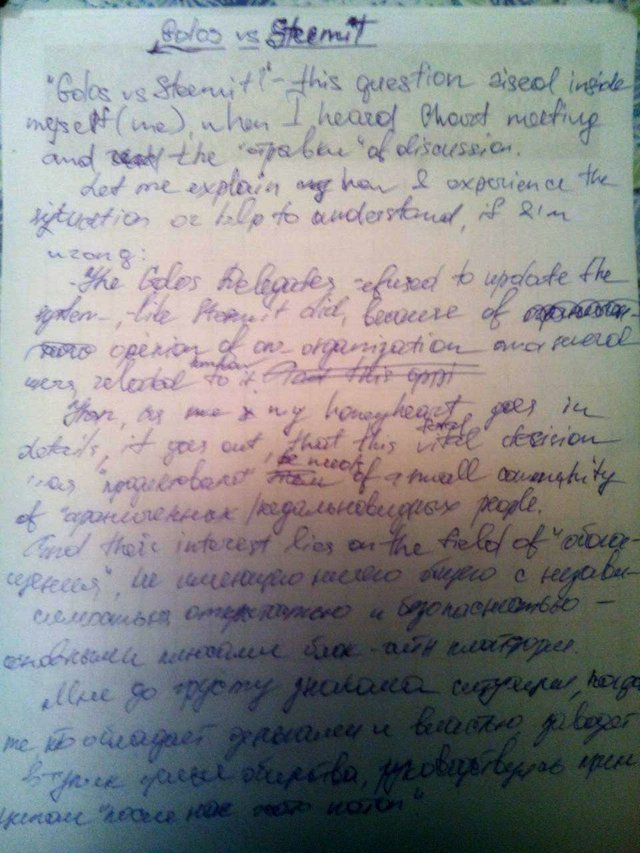 Golos vs Steemit
"Golos vs Steemit!" - this question rised inside
myself (me), when I heard meeting
and the of discussion.
Let me explain how I experience the
situation or help to understand, if I'm
wrong:
- The Golos Delegates refused to update the
system, like Steemit did, because of
opinion of our organization
were related to it
Then, as me & my honeyheart goes in
details, it goes out, that this vital decision
was "продиктовано" of a small community
of "ограниченных / недальновидных people.
And their interest lies on the field of "обога-
щения", не имеющего ничего общего с незави-
симостью и безопасностью -
основными плюсами блок-чейн платформ.
Мне до грусти знакома ситуация, когда
те кто обладает деньгами и властью заводят
в тупик целые общества, руководствуясь прин-
ципом "после нас хоть потоп"